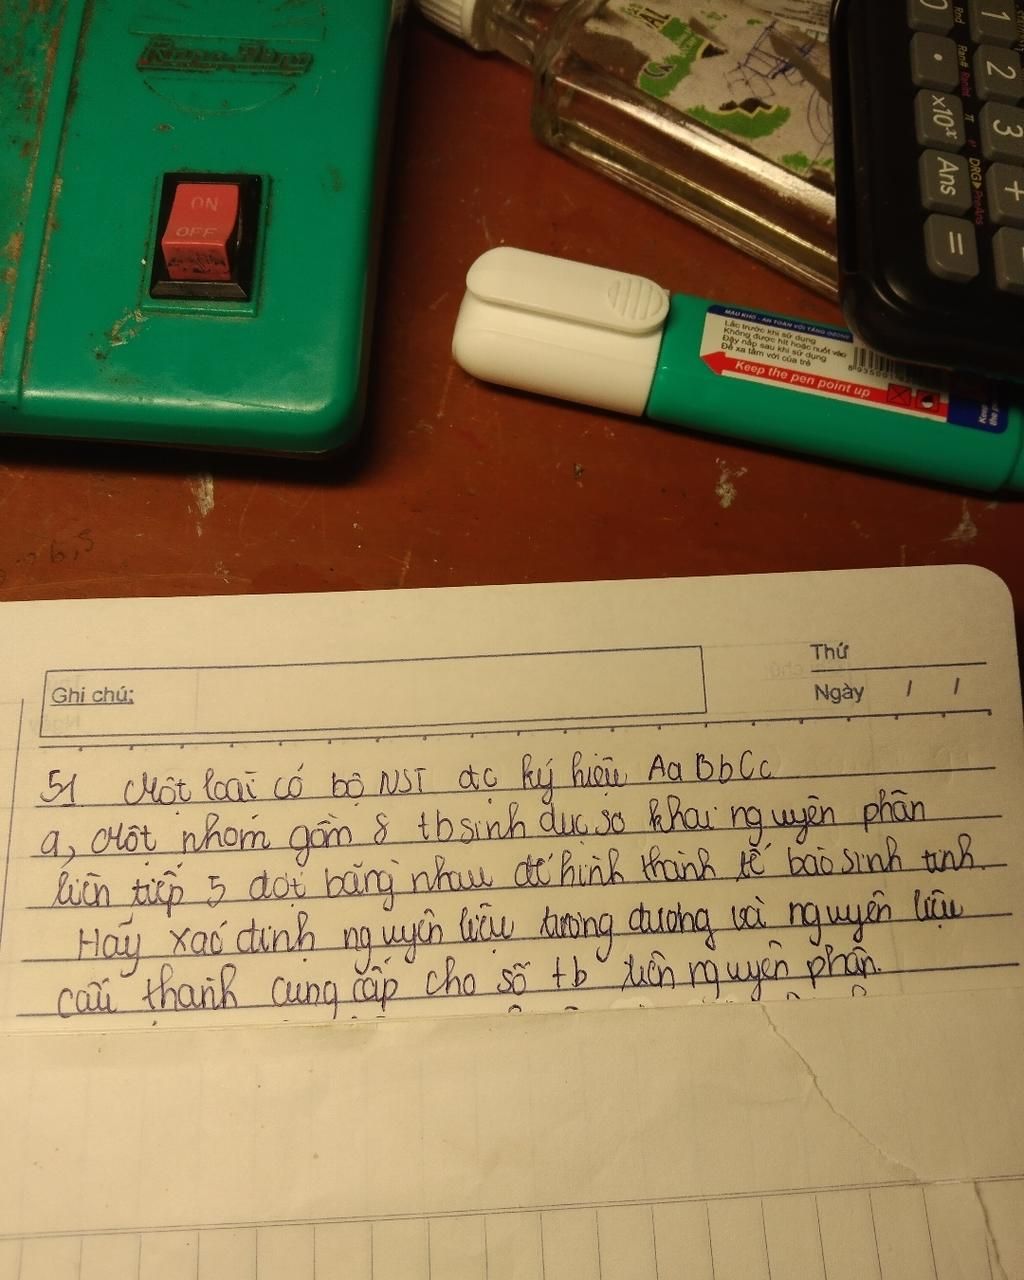 ON
OFF
0
1
Rnd
.
2
Ran#
RanInt
×10ˣ
3
π
Ans
+
DRG▸
=
MAU KHÔ - AN TOÀN VỚI TẦNG OZONE
Lắc trước khi sử dụng
Không được hít hoặc nuốt vào
Đậy nắp sau khi sử dụng
Để xa tầm với của trẻ
Keep the pen point up
Thứ
Ghi chú:
Ngày / /
51 Một loài có bộ NST đc ký hiệu AaBbCc
a, Một nhóm gồm 8 tb sinh dục sơ khai nguyên phân
liên tiếp 5 đợt bằng nhau để hình thành tế bào sinh tinh.
Hãy xác định nguyên liệu tương đương và nguyên liệu
cấu thành cung cấp cho số tb trên nguyên phân.